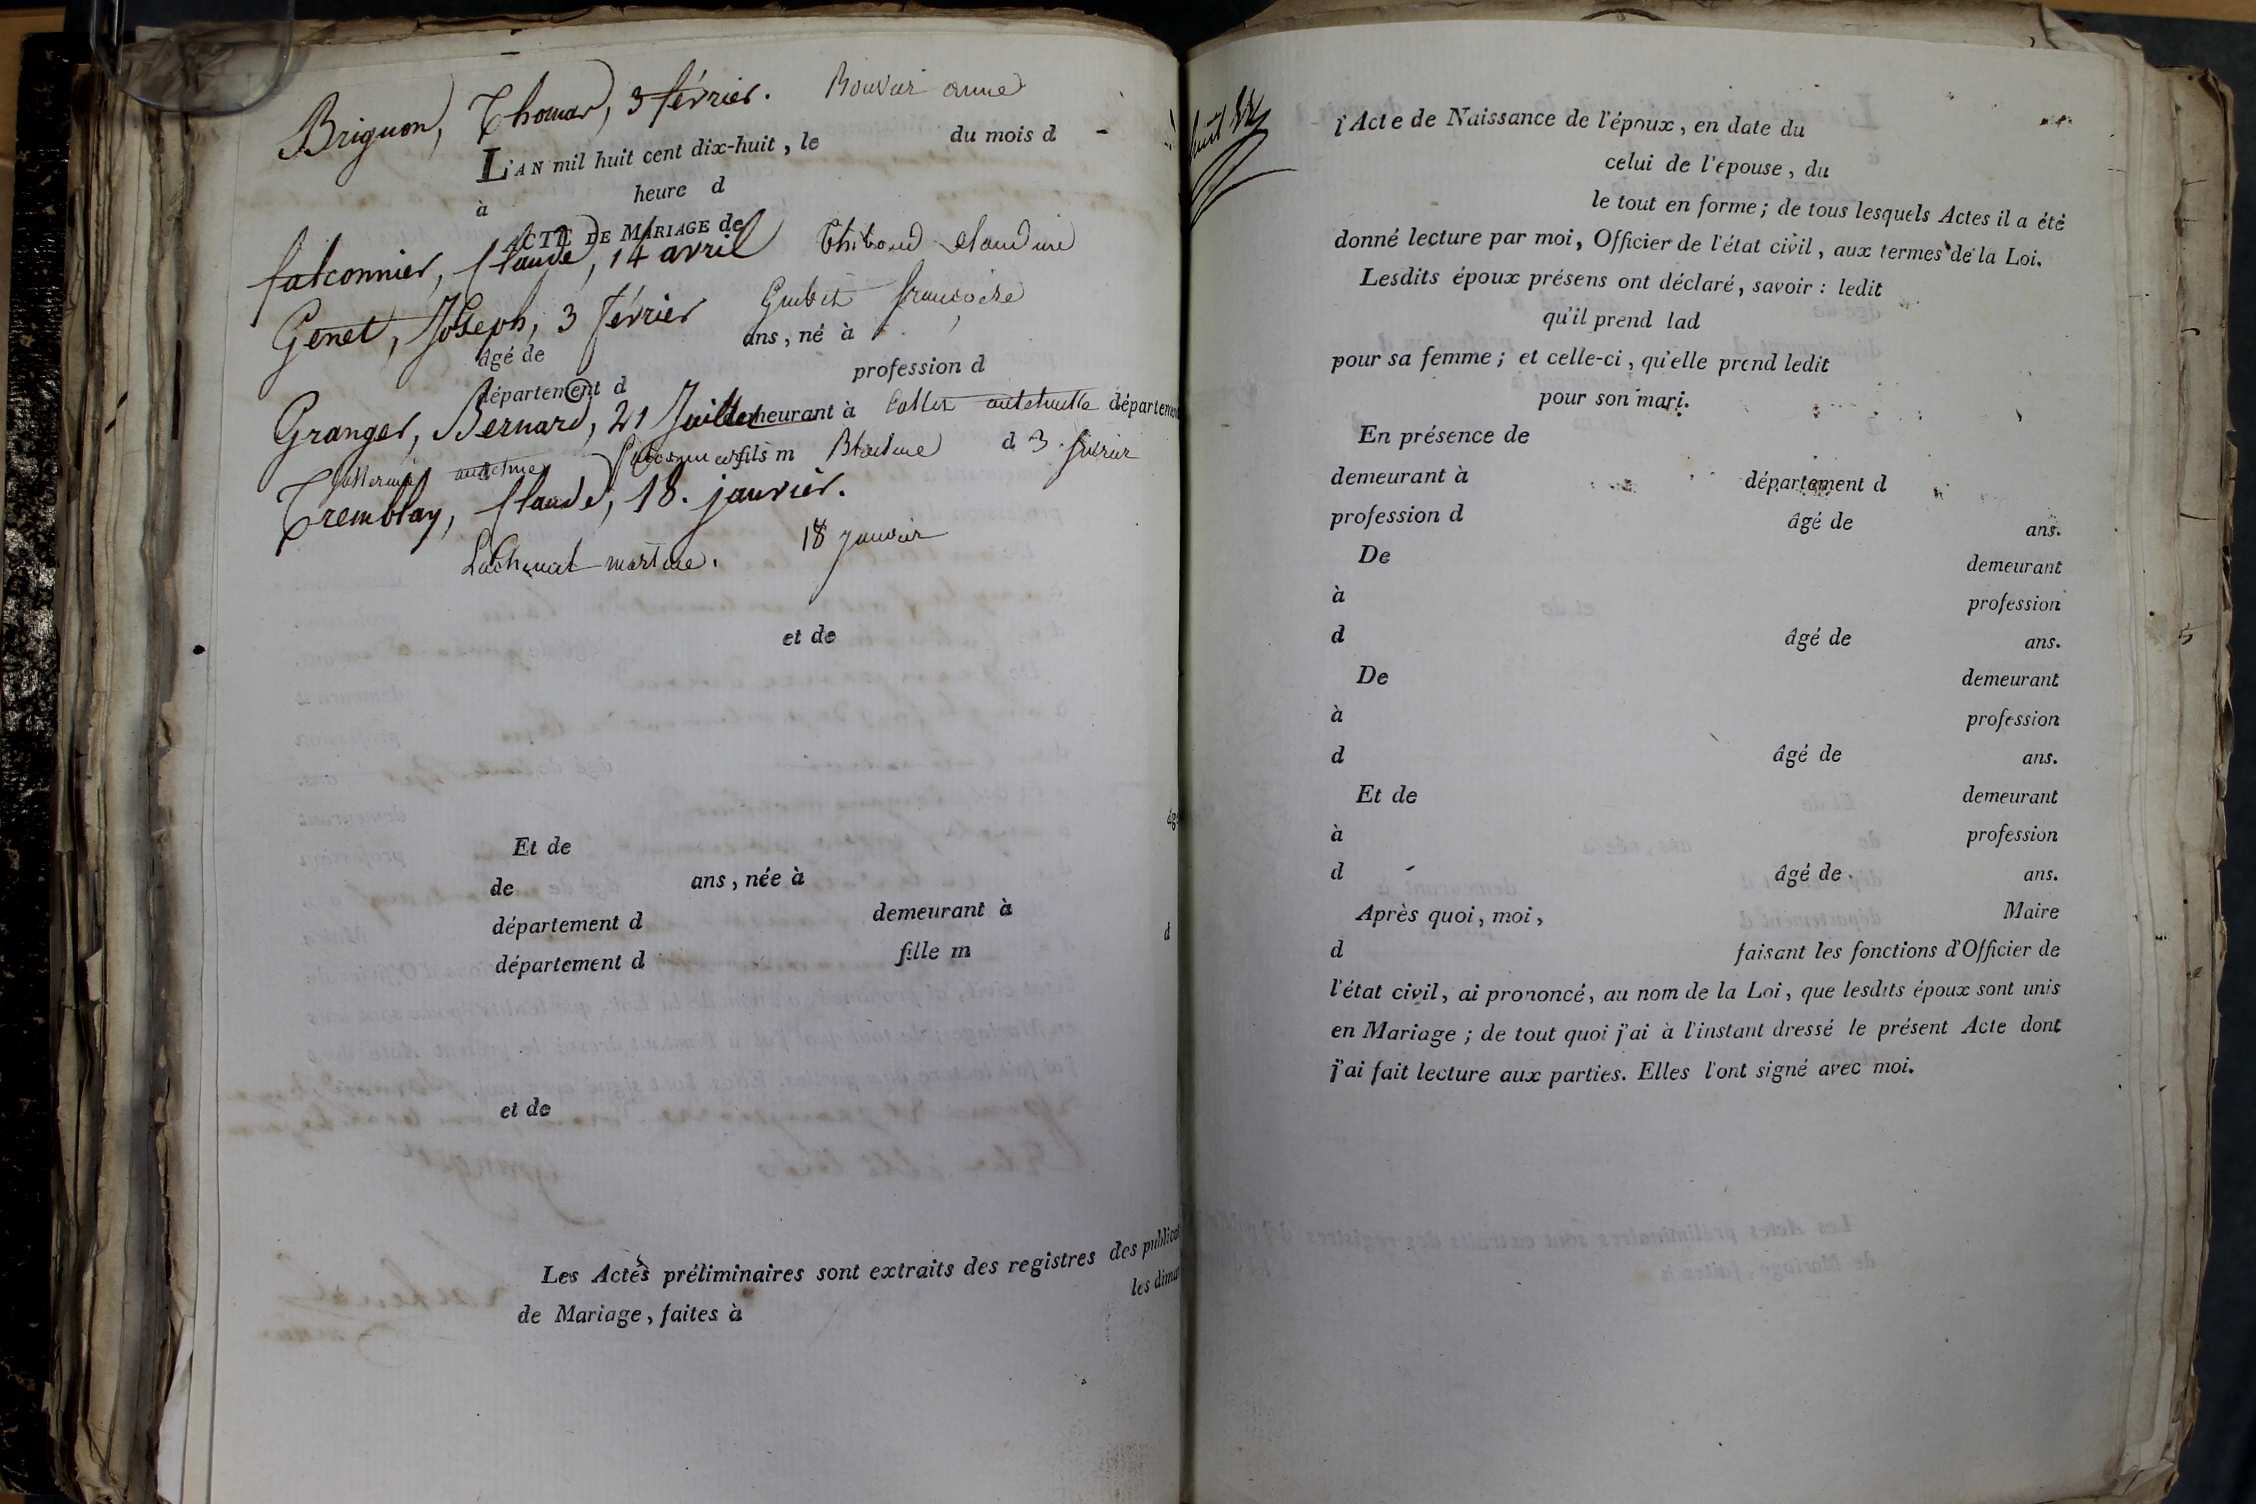 Brignon, Thomas, 3 février. Bouvier anne
L'AN mil huit cent dix-huit, le du mois d
à heure d
ACTE DE MARIAGE de
falconnier, Claude, 14 avril Thiboud Claudine
Genet, Joseph, 3 février Gubit françoise
âgé de ans, né à
département d profession d
Granger, Bernard, 21 Juillet demeurant à Collet antoinette départemen
antoine fils m d 3 février
Tremblay, Claude, 18. janvier.
Lachenal 18 janvier
et de
Et de
de ans, née à
département d demeurant à
département d fille m
et de
Les Actes préliminaires sont extraits des registres des publicat
de Mariage, faites à les diman
âgé
d
huit
l'Acte de Naissance de l'époux, en date du
celui de l'épouse, du
le tout en forme; de tous lesquels Actes il a été
donné lecture par moi, Officier de l'état civil, aux termes de la Loi.
Lesdits époux présens ont déclaré, savoir: ledit
qu'il prend lad
pour sa femme; et celle-ci, qu'elle prend ledit
pour son mari.
En présence de
demeurant à département d
profession d âgé de ans.
De demeurant
à profession
d âgé de ans.
De demeurant
à profession
d âgé de ans.
Et de demeurant
à profession
d âgé de ans.
Après quoi, moi, Maire
d faisant les fonctions d'Officier de
l'état civil, ai prononcé, au nom de la Loi, que lesdits époux sont unis
en Mariage; de tout quoi j'ai à l'instant dressé le présent Acte dont
j'ai fait lecture aux parties. Elles l'ont signé avec moi.